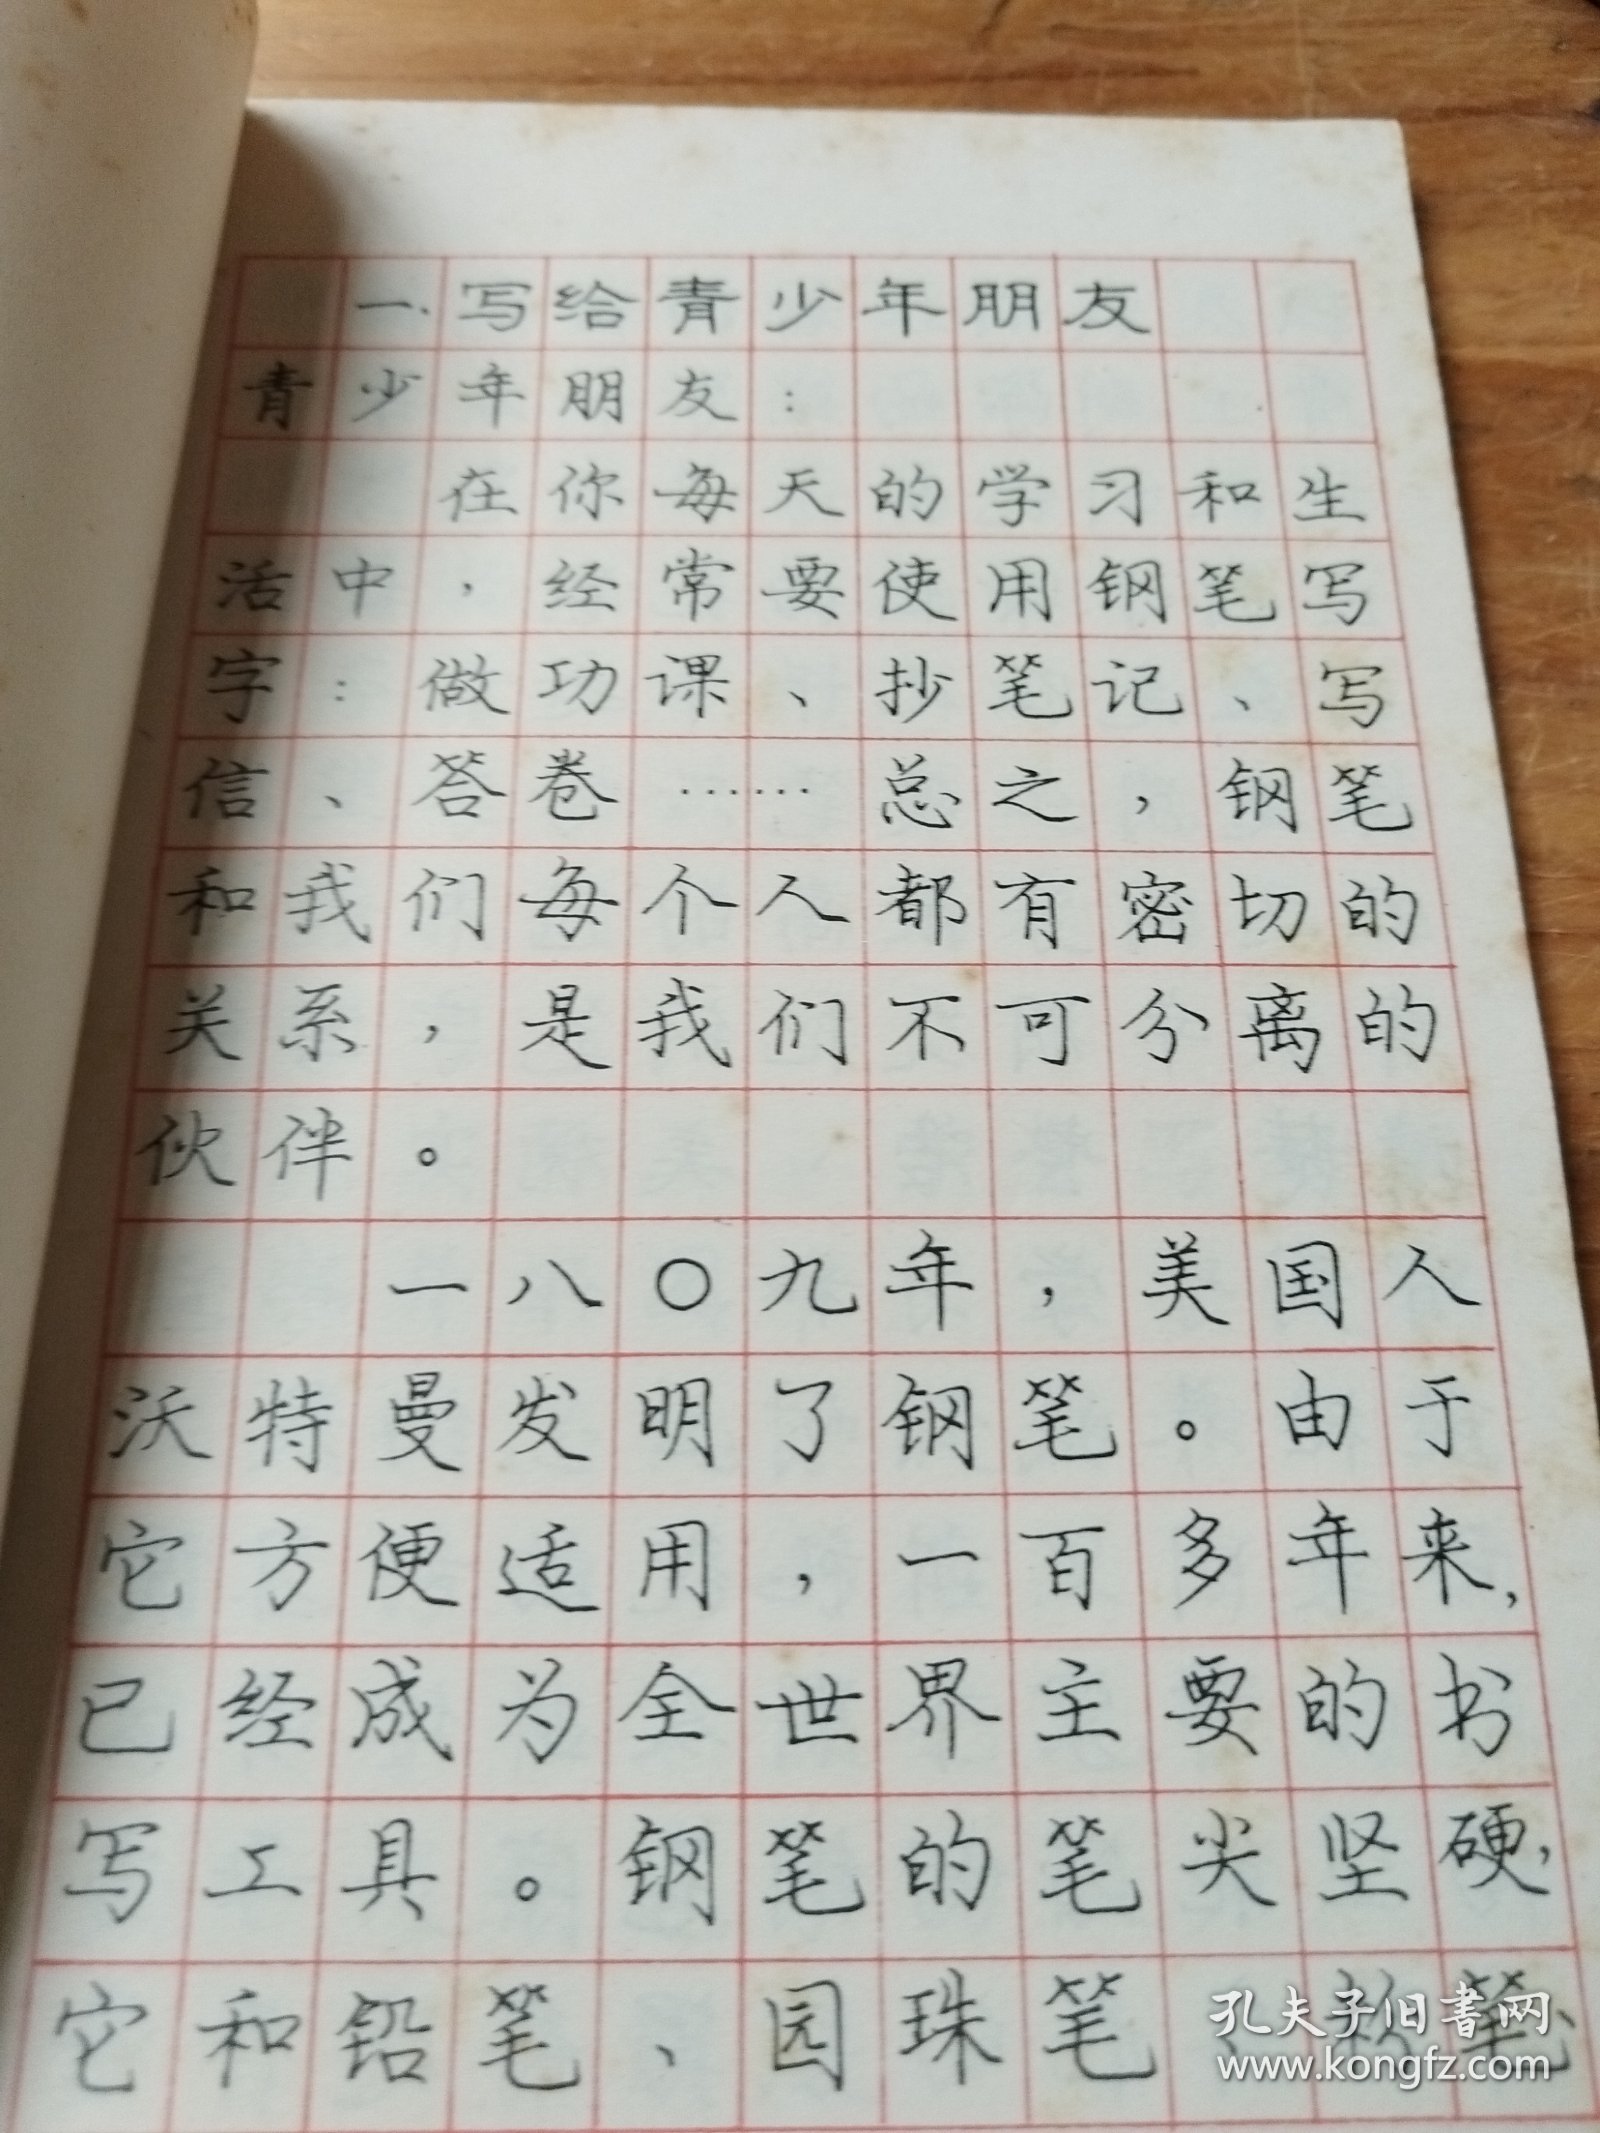 一.写给青少年朋友
青少年朋友：
在你每天的学习和生
活中，经常要使用钢笔写
字：做功课、抄笔记、写
信、答卷……总之，钢笔
和我们每个人都有密切的
关系，是我们不可分离的
伙伴。
一八〇九年，美国人
沃特曼发明了钢笔。由于
它方便适用，一百多年来，
已经成为全世界主要的书
写工具。钢笔的笔尖坚硬，
它和铅笔、园珠笔、粉笔
孔夫子旧书网
www.kongfz.com